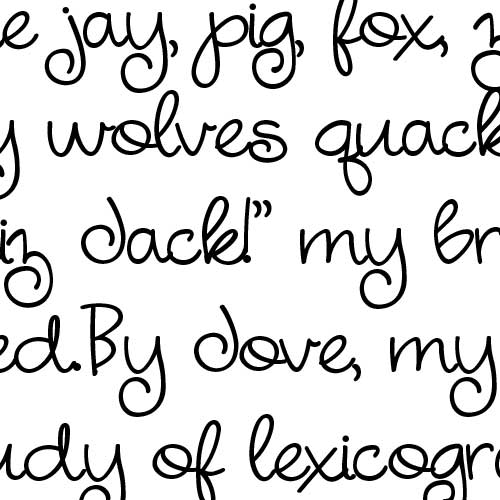 e jay, pig, fox, z
y wolves quack
iz Jack!” my br
ed.By Jove, my
udy of lexicogra